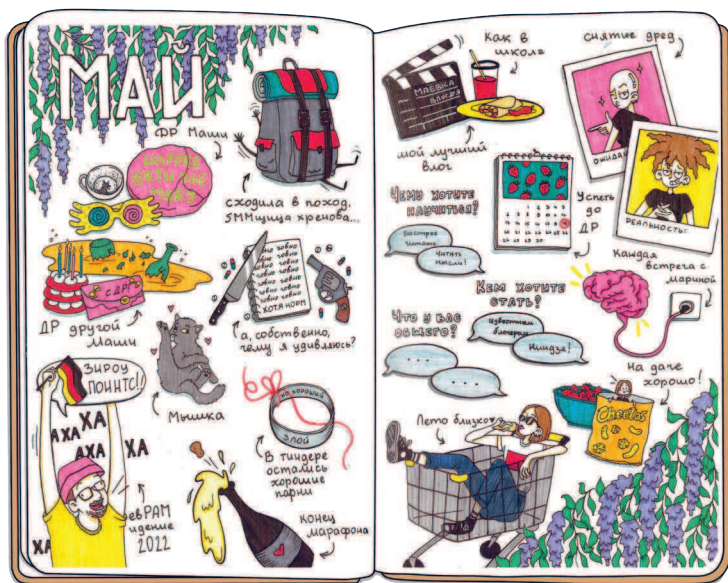 МАЙ
ДР Маши
сходила в поход,
SMMщица хренова...
С ДР!
ДР другой
маши
говно говно
говно говно
говно говно
ХОТЯ НОРМ
а, собственно,
чему я удивляюсь?
Мышка
ЗИРОУ
ПОИНТС!!
ХА
АХА
АХА
ХА
ХА
евРАМ
идение
2022
но хороший
ЗЛОЙ
В тиндере
остались
хорошие
парни
КОНЕЦ
марафона
МАЁВКА
Как в
школе
мой лучший
влог
снятие дред
ОЖИДА
РЕАЛЬНОСТЬ:
Чему хотите
научиться?
Быстрее
читать
Читать
мысли!
Успеть
до
ДР
Каждая
встреча с
мариной
Кем хотите
стать?
Известным
блогером
Ниндзя!
Что у вас
общего?
. . .
. . .
На даче
хорошо!
Cheetos
Лето близко